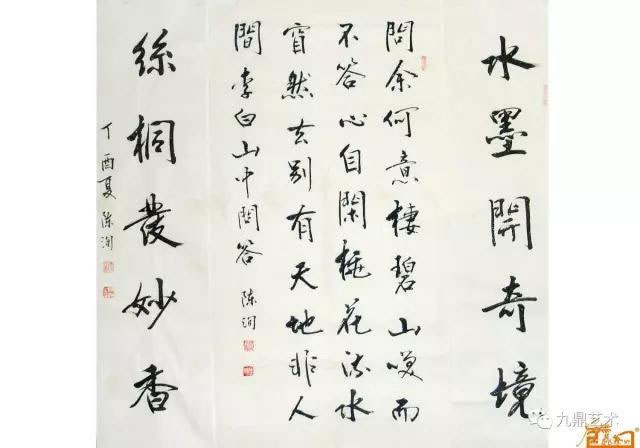 水墨開奇境
問余何意棲碧山咲而
不答心自閑桃花流水
窅然去別有天地非人
間李白山中問答 陈洵
絲桐發妙香
丁酉夏 陈洵
九鼎艺术